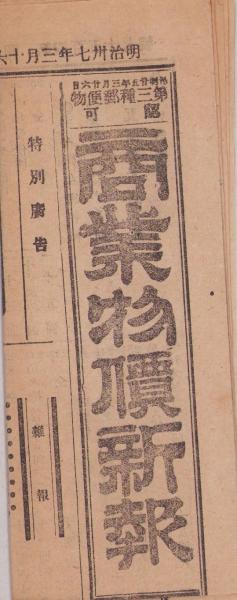 明治卅七年三月十六
明治廿五年三月廿六日
第三種郵便物
認可
商業物價新報
特別廣告
雑報